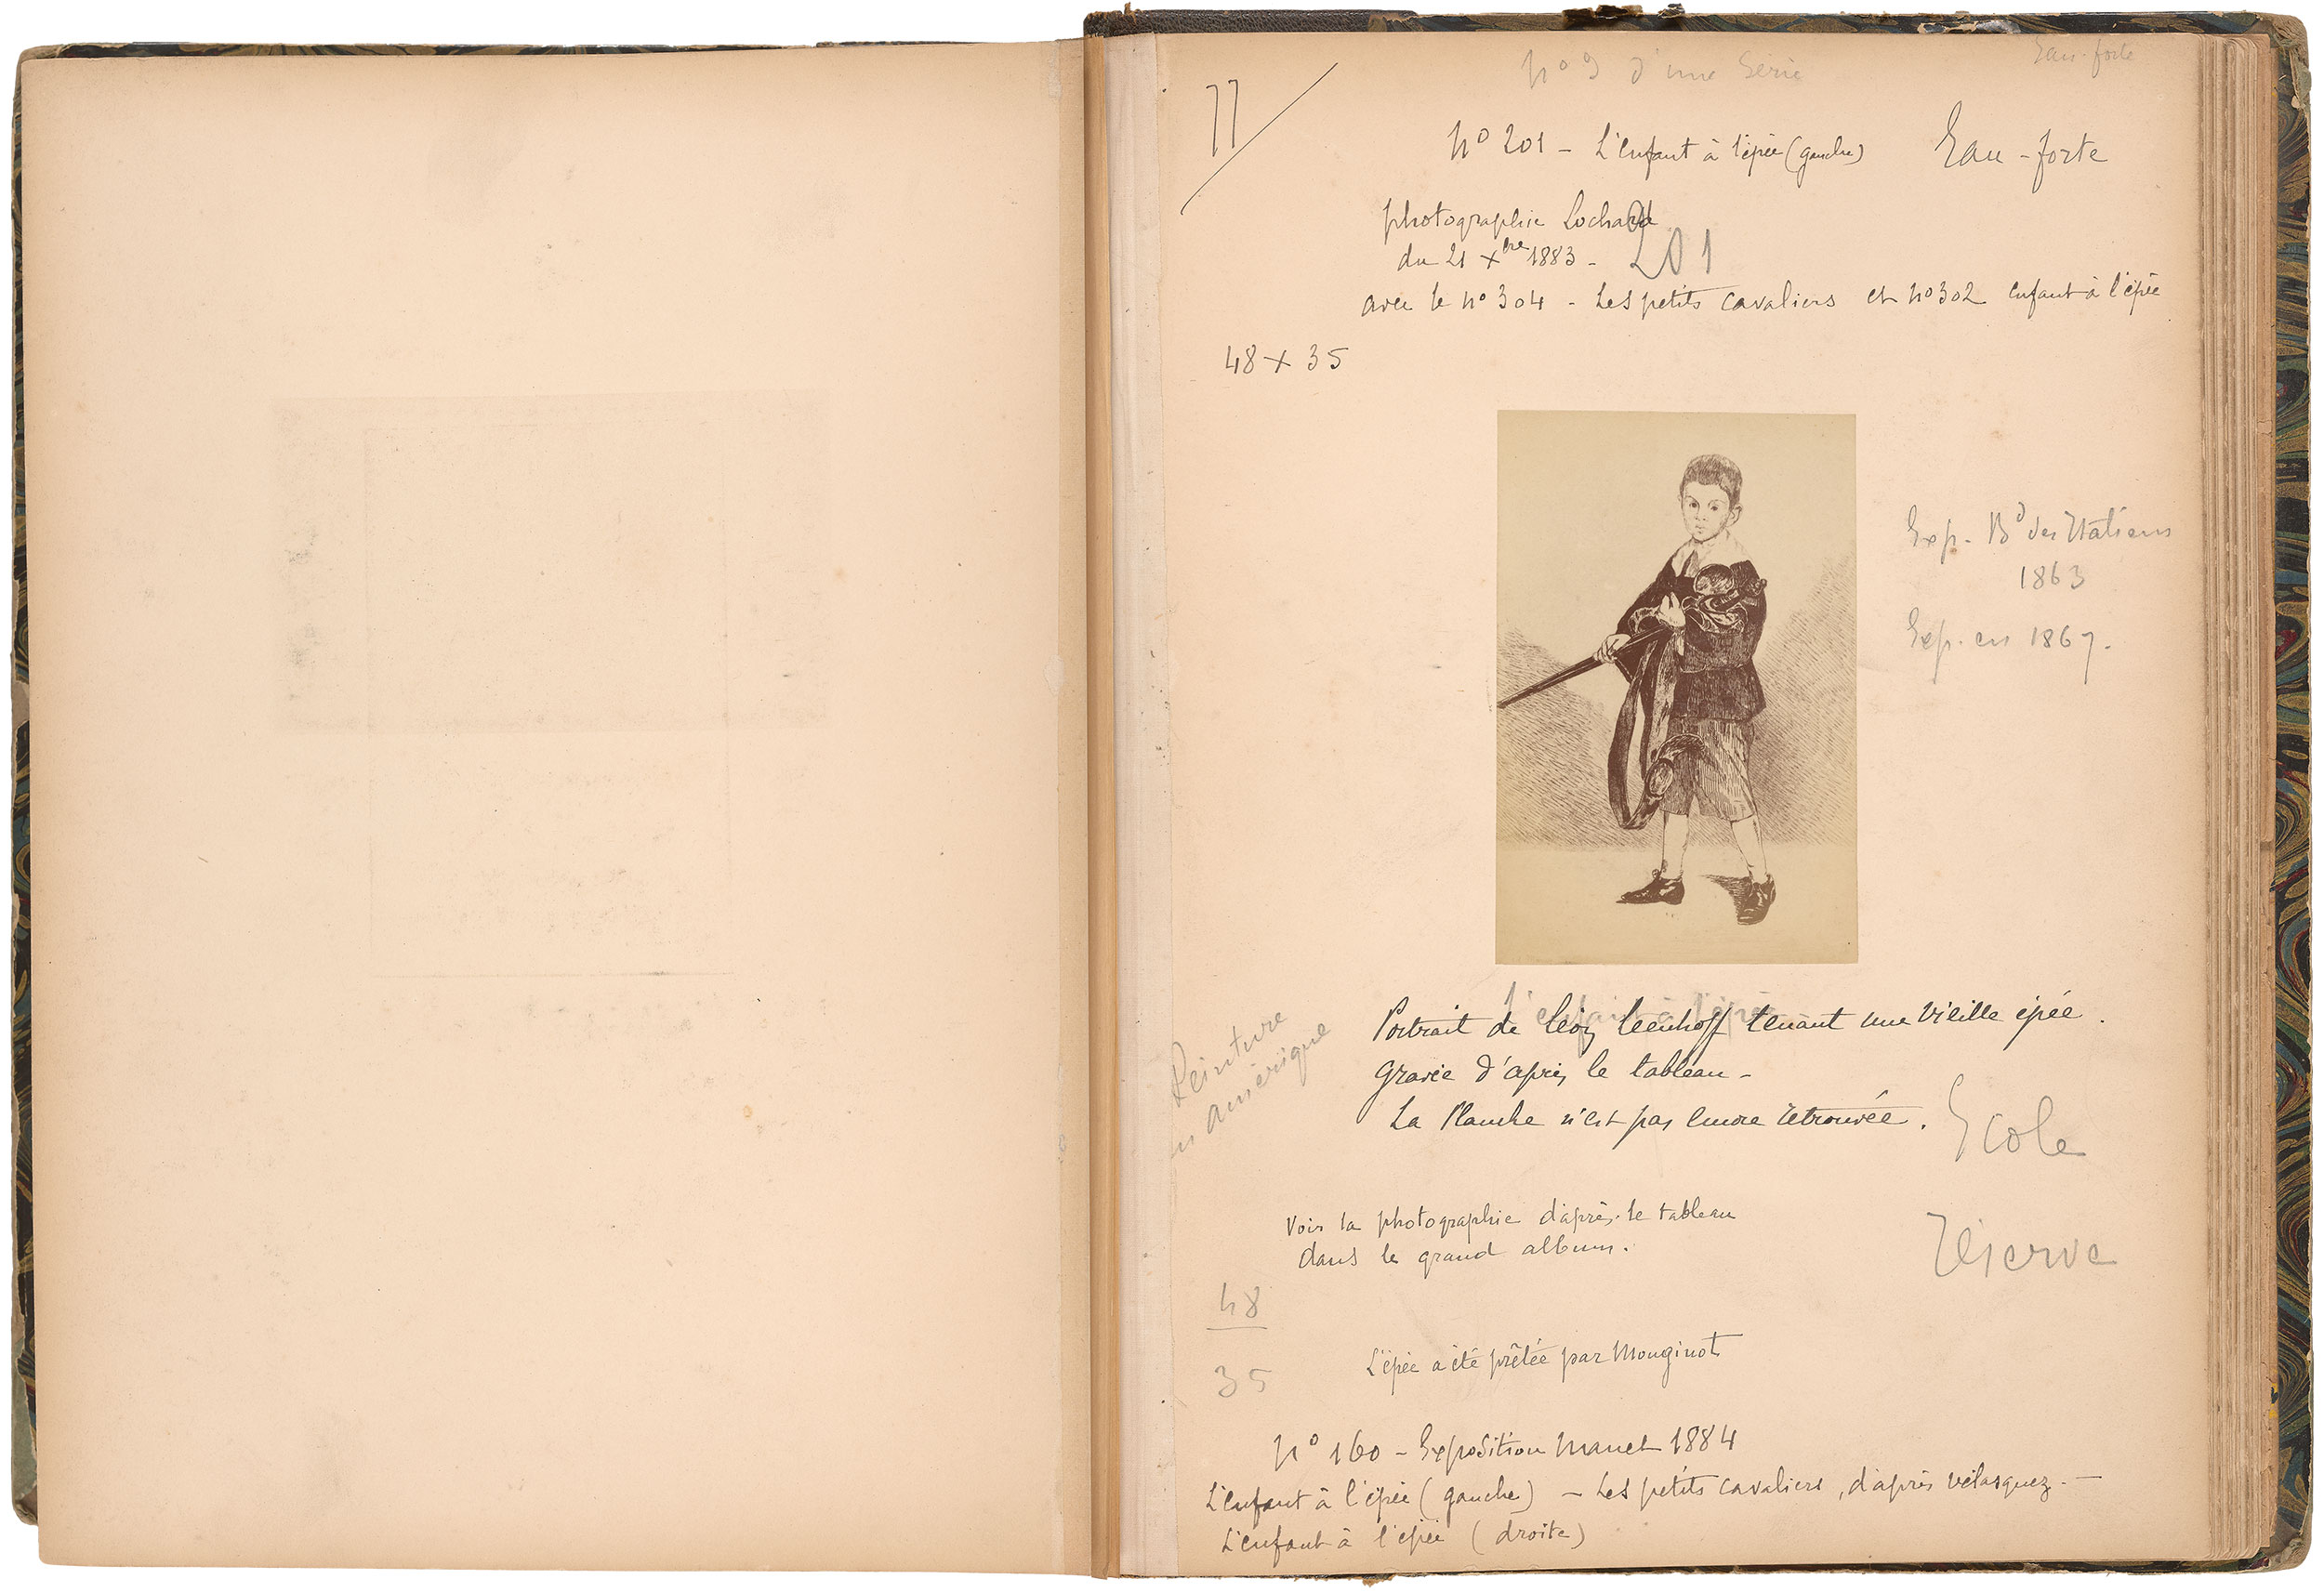 77
Eau-forte
nº 9 d'une Série
nº 201 - L'enfant à l'épée (gauche) Eau-forte
photographie Lochard
du 21 Xbre 1883 - 201
avec le nº 304 - Les petits cavaliers et nº 302 enfant à l'épée
48 x 35
Exp. Bd des Italiens
1863
Exp. en 1867.
L'enfant à l'épée
Portrait de Léon Leenhoff tenant une vieille épée.
Gravée d'après le tableau -
La Planche n'est pas encore retrouvée.
Peinture
en amérique
Ecole
Voir la photographie d'après le tableau
dans le grand album.
Réserve
48
35
L'épée a été prêtée par Mouginot
nº 160 - Exposition Manet 1884
L'enfant à l'épée (gauche) - Les petits cavaliers, d'après vélasquez. -
L'enfant à l'épée (droite)